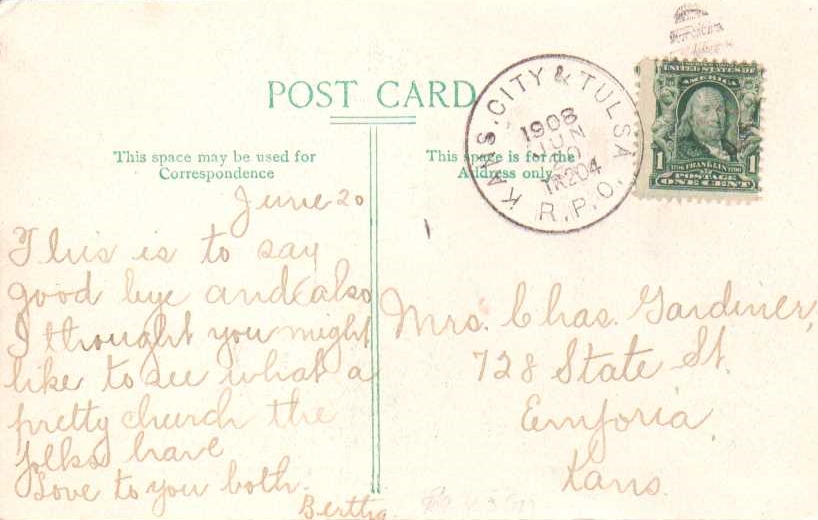 POST CARD
This space may be used for
Correspondence
This space is for the
Address only
KANS. CITY & TULSA
1908
JUN
20
TR204
R.P.O.
UNITED STATES OF
AMERICA
1
FRANKLIN
1
POSTAGE
ONE CENT
June 20
This is to say
good bye and also
I thought you might
like to see what a
pretty church the
folks have
Love to you both.
Bertha
Mrs. Chas. Gardiner,
728 State St.
Emporia,
Kans.